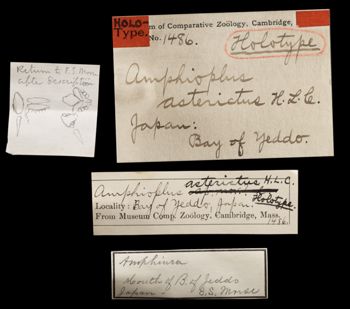 Return to E.S. Morse
after description
HOLO-
Type.
um of Comparative Zoology, Cambridge,
No. 1486.
Holotype
Amphioplus
asterictus H.L.C.
Japan:
Bay of Yeddo.
asterictus H.L.C.
Amphioplus
Locality: Bay of Yeddo, Japan. Holotype.
From Museum Comp. Zoology, Cambridge, Mass.
1486.
Amphiura
Mouth of B. of Jeddo
Japan - E.S. Morse